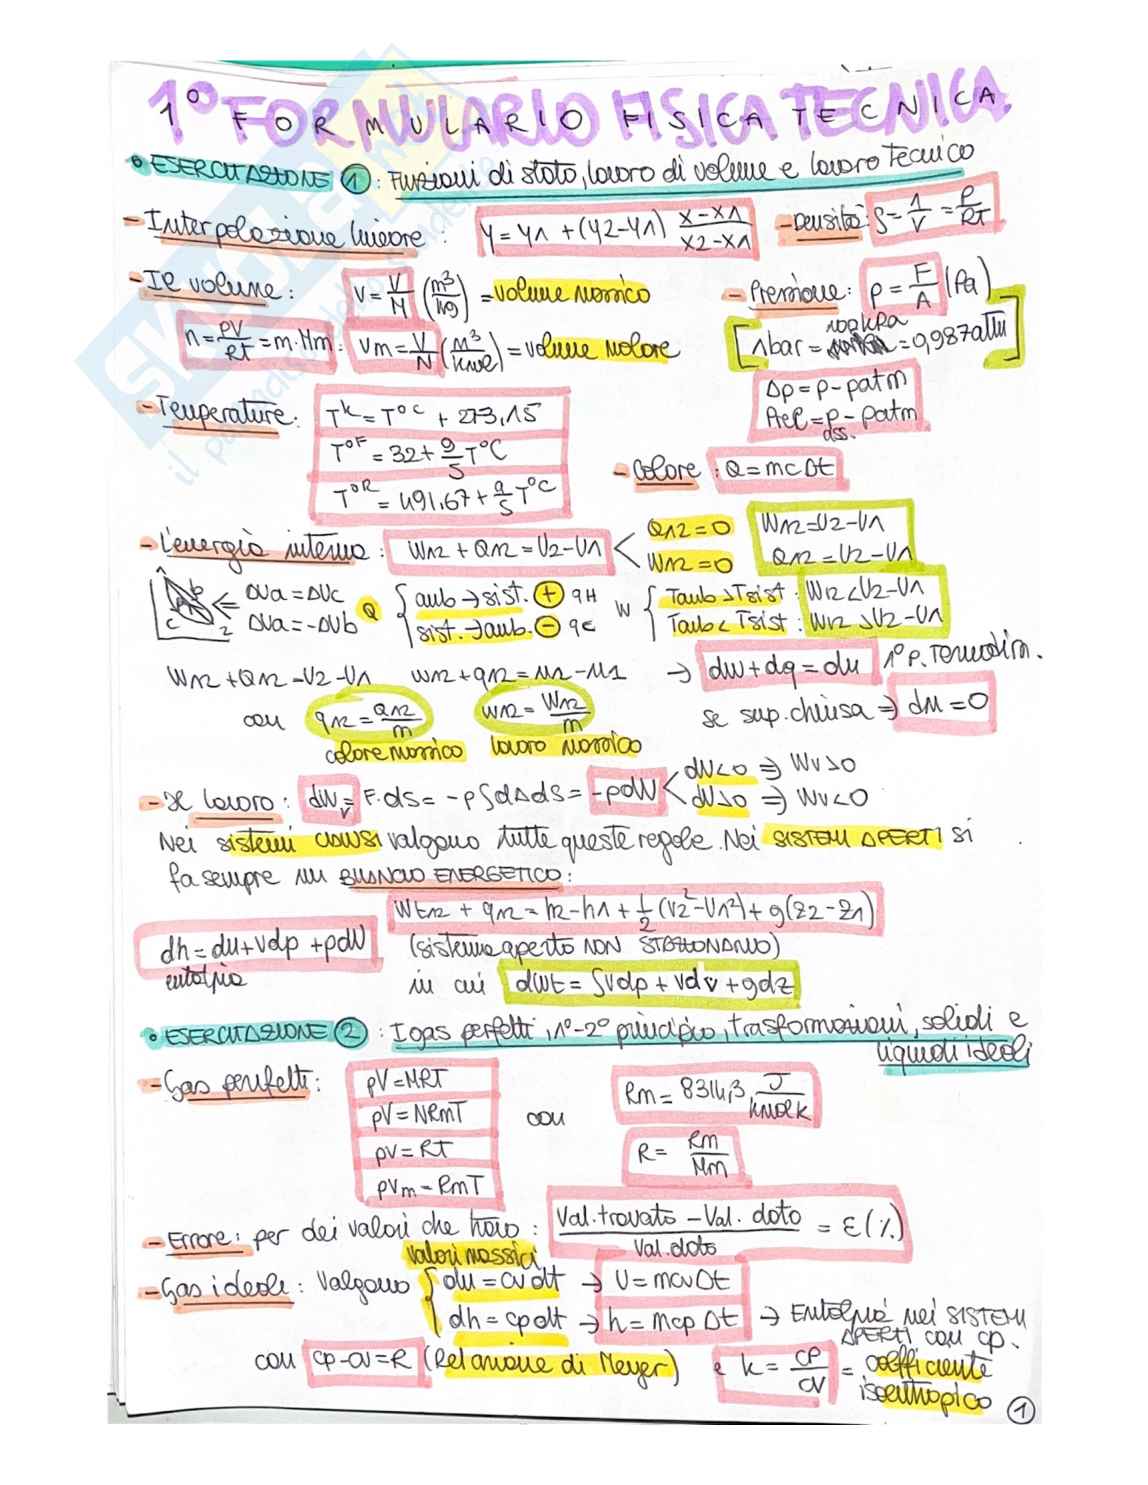 1° FORMULARIO FISICA TECNICA.
• ESERCITAZIONE 1 : Funzioni di stato, lavoro di volume e lavoro tecnico
- Interpolazione lineare : y = y1 + (y2-y1) x-x1 / x2-x1 - Densità: ρ = 1/v = P/RT
- Il volume : v = V/M (m³/kg) = volume massico - Pressione : p = F/A (Pa)
n = PV/RT = m·Mm : vm = V/N (m³/kmol) = volume molare [1bar = 100kPa = 0,987atm]
Δp = p - patm
Prel = pass. - patm
- Temperature : T^K = T^°C + 273,15
T^°F = 32 + 9/5 T°C
T^°R = 491,67 + 9/5 T°C
- Calore : Q = mcΔt
- L'energia interna : W12 + Q12 = U2-U1 < Q12=0 W12=U2-U1
W12=0 Q12=U2-U1
b a c 2 ⇐ ΔUa = ΔUc
ΔUa = -ΔUb
Q { amb → sist. + qH
sist. → amb. - qc
W { Tamb > Tsist : W12 < U2-U1
Tamb < Tsist : W12 > U2-U1
W12 + Q12 = U2-U1 w12 + q12 = u2-u1 → dw + dq = du 1° p. Termodin.
con q12 = Q12/m w12 = W12/m se sup. chiusa ⇒ du = 0
calore massico lavoro massico
- Il lavoro : dWv = F·ds = -p∫dAds = -pdV < dV<0 ⇒ Wv>0
dV>0 ⇒ Wv<0
Nei sistemi CHIUSI valgono tutte queste regole. Nei SISTEMI APERTI si
fa sempre un BILANCIO ENERGETICO :
Wt12 + q12 = h2-h1 + 1/2 (v2²-v1²) + g(z2-z1)
dh = du + vdp + pdV (sistema aperto NON STAZIONARIO)
entalpia in cui dwt = ∫vdp + vdv + gdz
• ESERCITAZIONE 2 : I gas perfetti, 1°-2° principio, trasformazioni, solidi e
liquidi ideali
- Gas perfetti : pV = MRT
pV = NRmT con Rm = 8314,3 J/kmolK
pV = RT R = Rm/Mm
pVm = RmT
- Errore : per dei valori che trovo : Val. trovato - Val. dato / Val. dato = ε(%)
valori massici
- Gas ideali : Valgono { du = cv dt → U = mcvΔt
dh = cp dt → h = mcp Δt → Entalpia nei SISTEMI
APERTI con cp.
con cp-cv=R (Relazione di Meyer) e k = cp/cv = coefficiente
isoentropico
1
SKUOLA.net
il paradiso dello studente